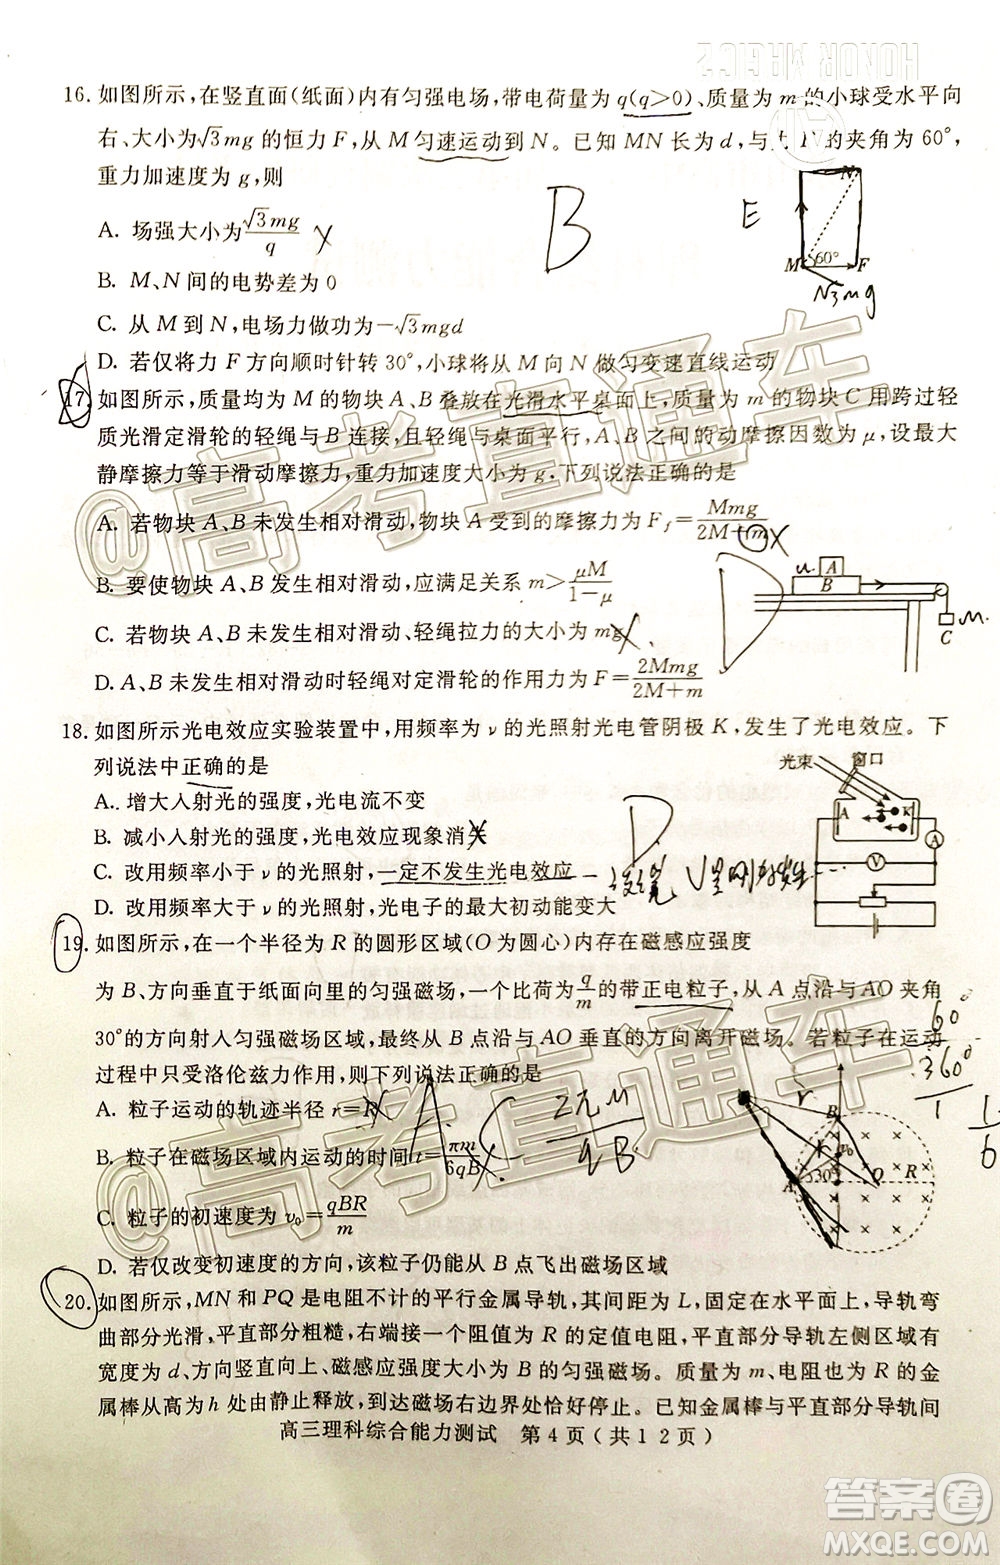 HONOR MAGIC 2
16. 如图所示,在竖直面(纸面)内有匀强电场,带电荷量为 q(q>0)、质量为 m 的小球受水平向
右、大小为√3mg 的恒力 F,从 M 匀速运动到 N。已知 MN 长为 d,与力 F 的夹角为 60°,
重力加速度为 g,则
A. 场强大小为√3mg/q
B. M、N 间的电势差为 0
C. 从 M 到 N,电场力做功为-√3mgd
D. 若仅将力 F 方向顺时针转 30°,小球将从 M 向 N 做匀变速直线运动
B
E
N
M 60° F
√3mg
17. 如图所示,质量均为 M 的物块 A、B 叠放在光滑水平桌面上,质量为 m 的物块 C 用跨过轻
质光滑定滑轮的轻绳与 B 连接,且轻绳与桌面平行,A、B 之间的动摩擦因数为 μ,设最大
静摩擦力等于滑动摩擦力,重力加速度为 g。下列说法正确的是
A. 若物块 A、B 未发生相对滑动,物块 A 受到的摩擦力为 Ff=Mmg/2M+m
B. 要使物块 A、B 发生相对滑动,应满足关系 m>μM/1-μ
C. 若物块 A、B 未发生相对滑动、轻绳拉力的大小为 mg
D. A、B 未发生相对滑动时轻绳对定滑轮的作用力为 F=2Mmg/2M+m
D
u A
B
C m
18. 如图所示光电效应实验装置中,用频率为 ν 的光照射光电管阴极 K,发生了光电效应。下
列说法中正确的是
A. 增大入射光的强度,光电流不变
B. 减小入射光的强度,光电效应现象消失
C. 改用频率小于 ν 的光照射,一定不发生光电效应
D. 改用频率大于 ν 的光照射,光电子的最大初动能变大
D
光束 窗口
A K
A
V
19. 如图所示,在一个半径为 R 的圆形区域(O 为圆心)内存在磁感应强度
为 B、方向垂直于纸面向里的匀强磁场,一个比荷为q/m的带正电粒子,从 A 点沿与 AO 夹角
30°的方向射入匀强磁场区域,最终从 B 点沿与 AO 垂直的方向离开磁场。若粒子在运动
过程中只受洛伦兹力作用,则下列说法正确的是
A. 粒子运动的轨迹半径 r=R
B. 粒子在磁场区域内运动的时间 t=πm/6qB
C. 粒子的初速度为 v₀=qBR/m
D. 若仅改变初速度的方向,该粒子仍能从 B 点飞出磁场区域
A
2πM/qB
60°
360°
1
1/6
r
B
v₀
A 30° O R
20. 如图所示,MN 和 PQ 是电阻不计的平行金属导轨,其间距为 L,导轨弯
曲部分光滑,平直部分粗糙,右端接一个阻值为 R 的定值电阻,平直部分导轨左侧区域有
宽度为 d、方向竖直向上、磁感应强度大小为 B 的匀强磁场。质量为 m、电阻也为 R 的金
属棒从高为 h 处由静止释放,到达磁场右边界处恰好停止。已知金属棒与平直部分导轨间
高三理科综合能力测试 第 4 页(共 1 2 页)
@高考直通车
@高考直通车
答案圈
MXQE.COM